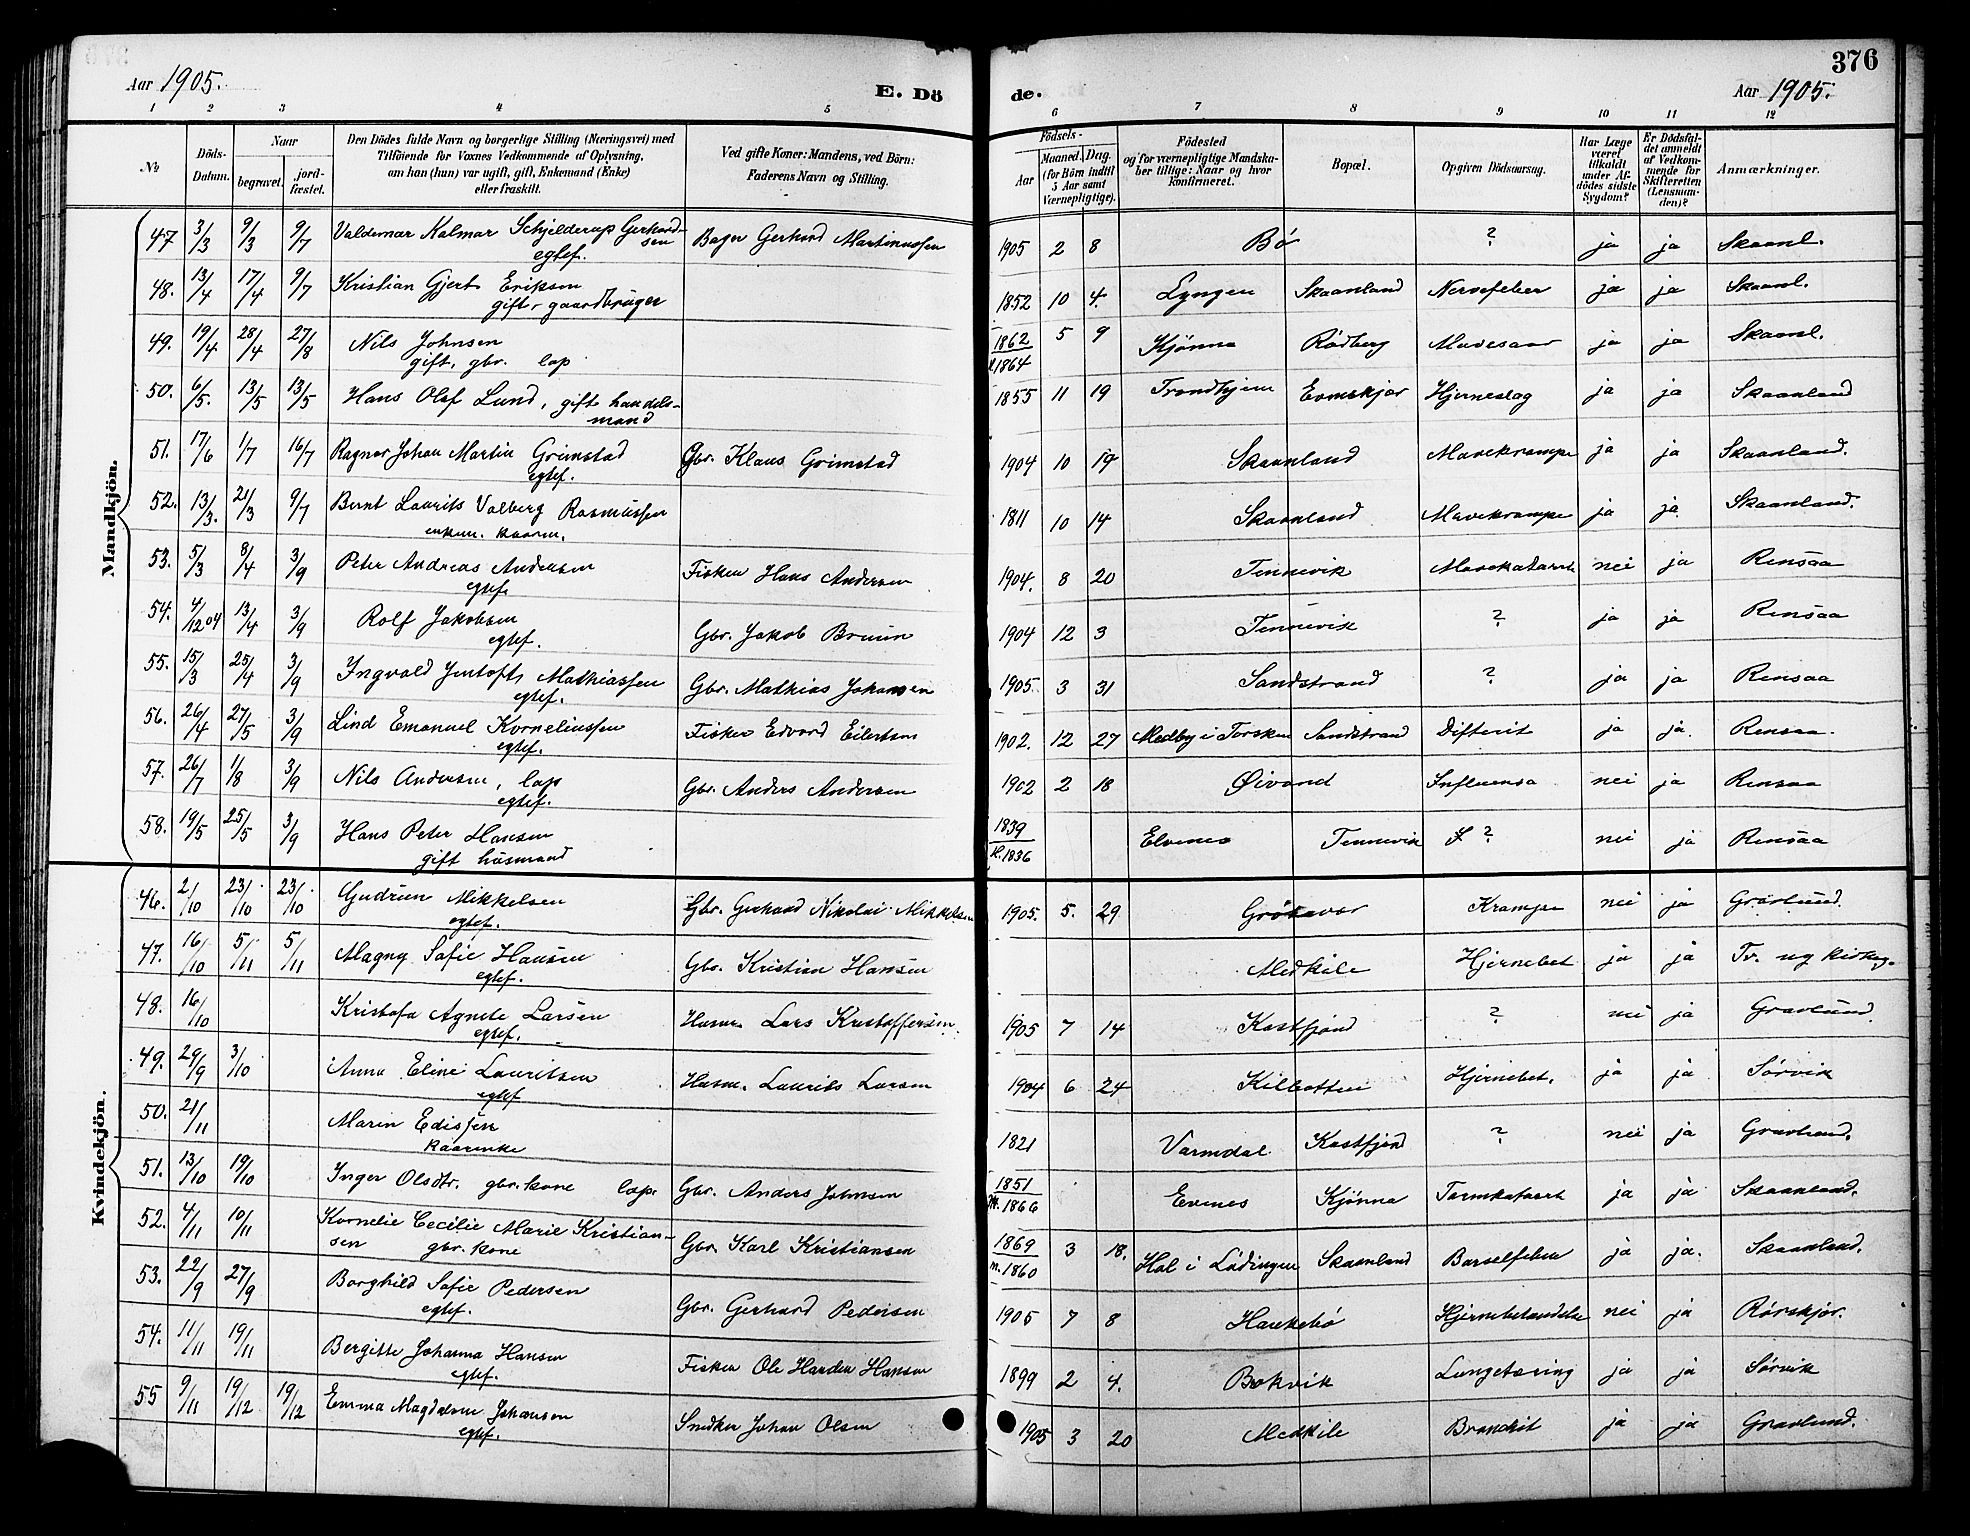 376
Aar 1905.
E. Dö
de.
Aar 1905.
1 2 3 4 5 6 7 8 9 10 11 12
No
Döds-Datum.
Naar
begravet.
jord-fæstet.
Den Dödes fulde Navn og borgerlige Stilling (Næringsvei) med
Tilföiende for Voxnes Vedkommende af Oplysning,
om han (hun) var ugift, gift, Enkemand (Enke)
eller fraskilt.
Ved gifte Koner: Mandens, ved Börn:
Faderens Navn og Stilling.
Födsels-
Aar
Maaned. Dag.
(for Börn indtil
5 Aar samt
Værnepligtige).
Födested
og for værnepligtige Mandska-
ber tillige: Naar og hvor
konfirmeret.
Bopæl.
Opgiven Dödsaarsag.
Har Læge
været
tilkaldt
under Af-
dödes sidste
Sygdom?
Er Dödsfal-
det anmeldt
af Vedkom-
mende for
Skifteretten
(Lensman-
den)?
Anmærkninger.
Mandkjön.
47 3/3 9/3 9/7 Valdemar Kalmar Schjilderup Gerhard-
sen
egtef. Bager Gerhard Martinussen 1905 2 8 Bø ? ja ja Skaanl.
48. 13/4 17/4 9/7 Kristian Gjert Eriksen
gift, gaardbruger 1852 10 4. Lyngen Skaanland Nervefeber ja ja Skaanl.
49. 19/4 28/4 27/8 Nils Johnsen
gift, gbr. lap 1862 5 9 Kjønna Rødberg Mavesaar ja ja Skaanl.
k. 1864
50. 6/5. 13/5 13/5 Hans Olaf Lund, gift handels-
mand 1855 11 19 Trondhjem Evenskjær Hjerneslag ja ja Skaanland
51. 17/6 1/7 16/7 Ragnar Johan Martin Grimstad
egtef. Gbr. Klaus Grimstad 1904 10 19 Skaanland Mavekrampe ja ja Skaanland.
52. 13/3. 21/3 9/7 Bernt Laurits Valberg Rasmussen
enkem. kaarm. 1811 10 14 Skaanland Mavekrampe ja ja Skaanland.
53. 5/3 8/4 3/9 Peter Andreas Andersen
egtef. Fisker Hans Andersen 1904. 8 20 Tennevik Mavekatarrh nei ja Rensaa
54. 4/12 04 13/4 3/9 Rolf Jakobsen
egtef. Gbr. Jakob Bruun 1904 12 3 Tennevik ? ja ja Rensaa
55. 15/3 25/4 3/9 Ingvald Jentoft Mathiassen
egtef. Gbr. Mathias Johansen 1905. 3 31 Sandstrand ? ja ja Rensaa
56. 26/4 27/5 3/9 Lind Emanuel Korneliussen
egtef. Fisker Edvard Eilertsen 1902. 12 27 Medby i Torsken Sandstrand Difterit ja ja. Rensaa.
57. 26/7 1/8 3/9 Nils Andersen, lap
egtef. Gbr. Anders Andersen 1902 2 18 Øivand Influensa nei ja Rensaa
58. 19/5 25/5 3/9 Hans Peter Hansen
gift husmand 1839 Elvenes Tennevik ? nei ja Rensaa
k. 1836
Kvindekjön.
46. 2/10 23/10 23/10 Gudrun Mikkelsen
egtef. Gbr. Gerhard Nikolai Mikkelsen 1905. 5. 29 Grøtavær Krampe nei ja Gravlund.
47. 16/10 5/11 5/11 Magny Sofie Hansen
egtef. Gbr. Kristian Hansen Medkile Hjernebet ja ja Tr.
48. 16/10 Kristofa Agnete Larsen
egtef. Husm. Lars Kristoffersen. 1905 7 14 Kastfjord ? nei ja Gravlund.
49. 29/9 3/10 Anna Eline Lauritsen
egtef Husm. Laurits Larsen 1904 6 24 Kilbotten Hjernebet. ja ja Sørvik
50. 21/11 Maren Edissen
kaarenke 1821 Varmdal Kastfjord ? nei ja Gravlund.
51. 13/10 19/10 Inger Olsdtr. gbr. kone lap. Gbr. Anders Johnsen 1851 Evenes Kjønna Tarmkatarrh ja ja Skaanland.
m. 1866
52. 4/11 10/11 Kornelie Cecilie Marie Kristian-
sen gbr. kone Gbr. Karl Kristiansen 1869 3 18. Hol i Lødingen Skaanland Barselfeber ja ja. Skaanland.
m. 1860
53. 22/9 27/9 Borghild Sofie Pedersen
egtef. Gbr. Gerhard Pedersen 1905 7 8 Haukebø Hjernebetændelse nei ja Rørskjær.
54. 11/11 19/11 Bergitte Johanna Hansen
egtef. Fisker Ole Hardin Hansen 1899 2 4. Bokvik Lungetæring ja ja Sørvik
55 9/11 19/12 19/12 Emma Magdalene Johansen
egtef. Snedker Johan Olsen 1905 3 20 Medkile Bronkit ja ja Gravlund.